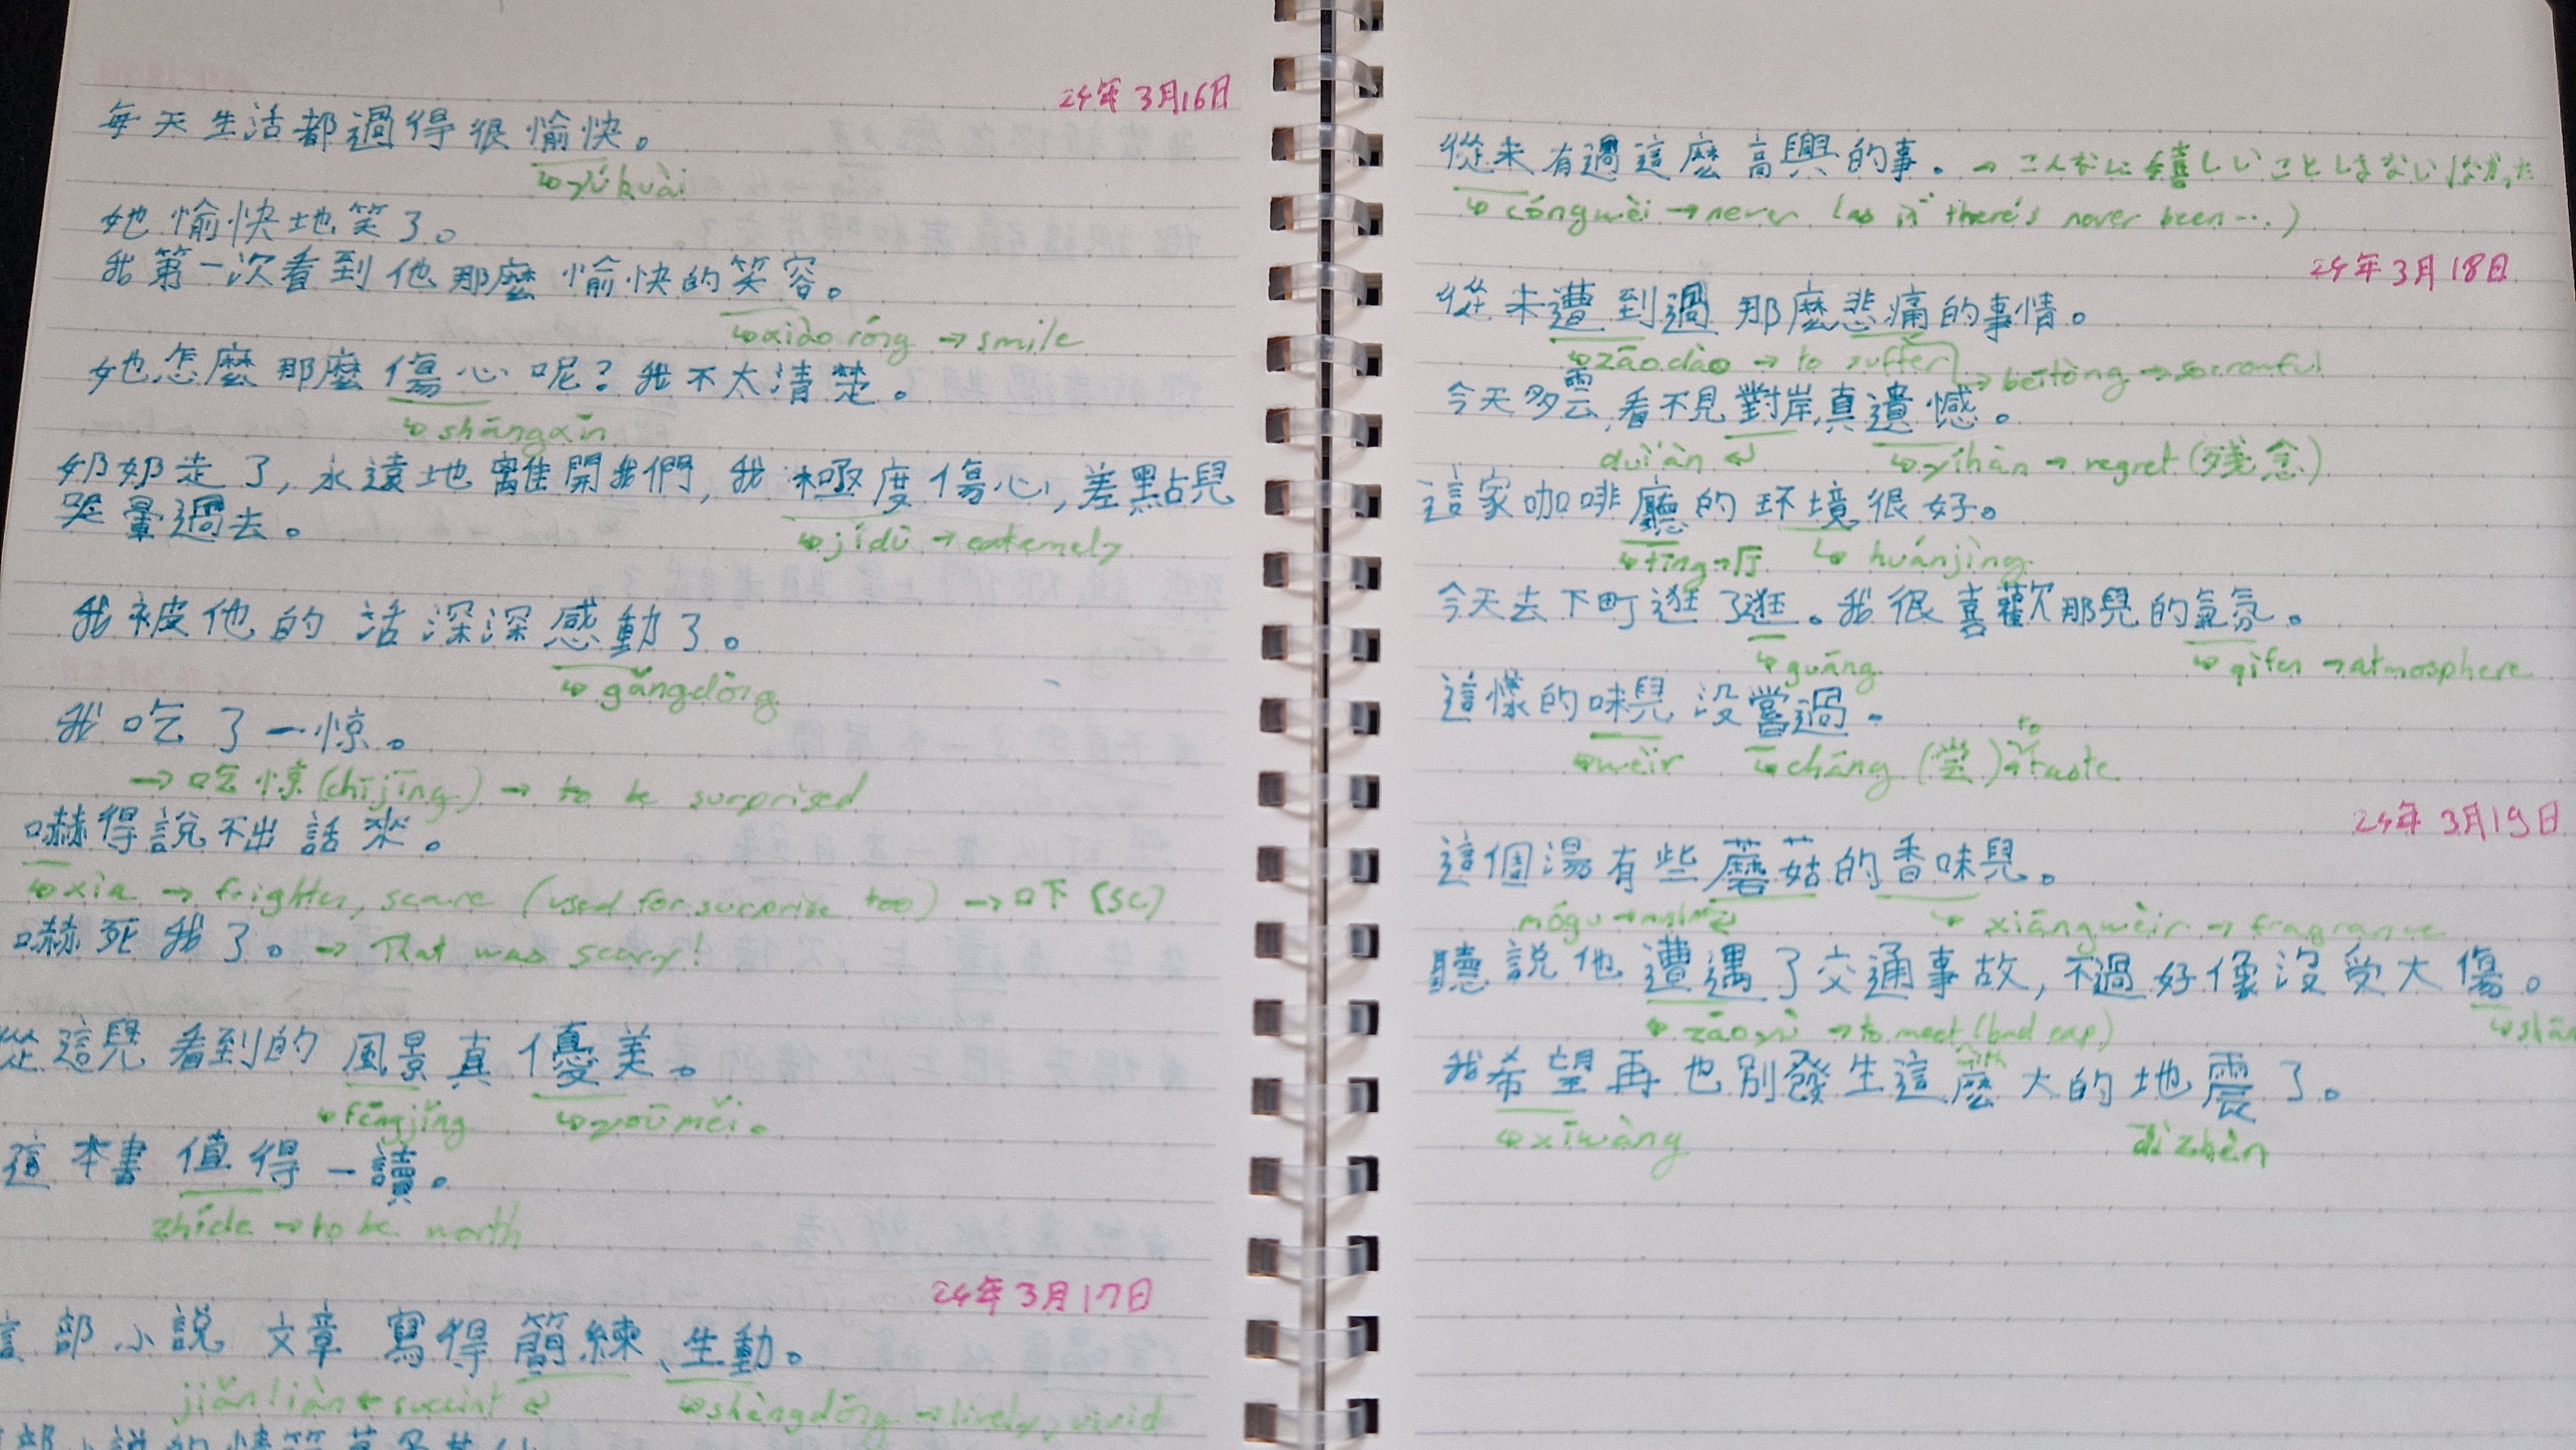 24年3月16日
每天生活都過得很愉快。
↳yúkuài
她愉快地笑了。
我第一次看到他那麼愉快的笑容。
↳xiào róng → smile
她怎麼那麼傷心呢?我不太清楚。
↳shāngxīn
奶奶走了,永遠地離開我們,我極度傷心,差點兒
哭暈過去。
↳jídù → extremely
我被他的话深深感動了。
↳gǎngdòng
我吃了一惊。
→吃惊(chījīng) → to be surprised
嚇得說不出話來。
↳xià → frighten, scare (used for surprise too) → 吓 (SC)
嚇死我了。→ That was scary!
從這兒看到的風景真優美。
↳fēngjǐng ↳yōuměi。
這本書值得一讀。
zhíde → to be worth
24年3月17日
這部小說文章寫得簡練、生動。
jiǎnliàn ← succint ↲ ↳shēngdòng → lively, vivid
從来有過這麼高興的事。→ こんなに嬉しいことしまない/なかった
↳cóngwèi → never (as in "there's never been…)
24年3月18日
從未遭到過那麼悲痛的事情。
↳zāodào → to suffer ↳bēitòng → sorrowful
今天多雲,看不見對岸,真遺憾。
duì'àn ↲ ↳yíhàn → regret (残念)
這家咖啡廳的环境很好。
↳tīng→厅 ↳huánjìng
今天去下町逛了逛。我很喜歡那兒的氣氛。
↳guàng ↳qìfēn → atmosphere
這樣的味兒没嘗過。
↳wèir ↳cháng (尝)→to taste
24年3月19日
這個湯有些蘑菇的香味兒。
mógu ↲ ↳xiāngwèir → fragrance
聽說他遭遇了交通事故,不過好像沒受大傷。
↳zāoyù → to meet with (bad exp)
我希望再也別發生這麼大的地震了。
↳xīwàng dìzhèn